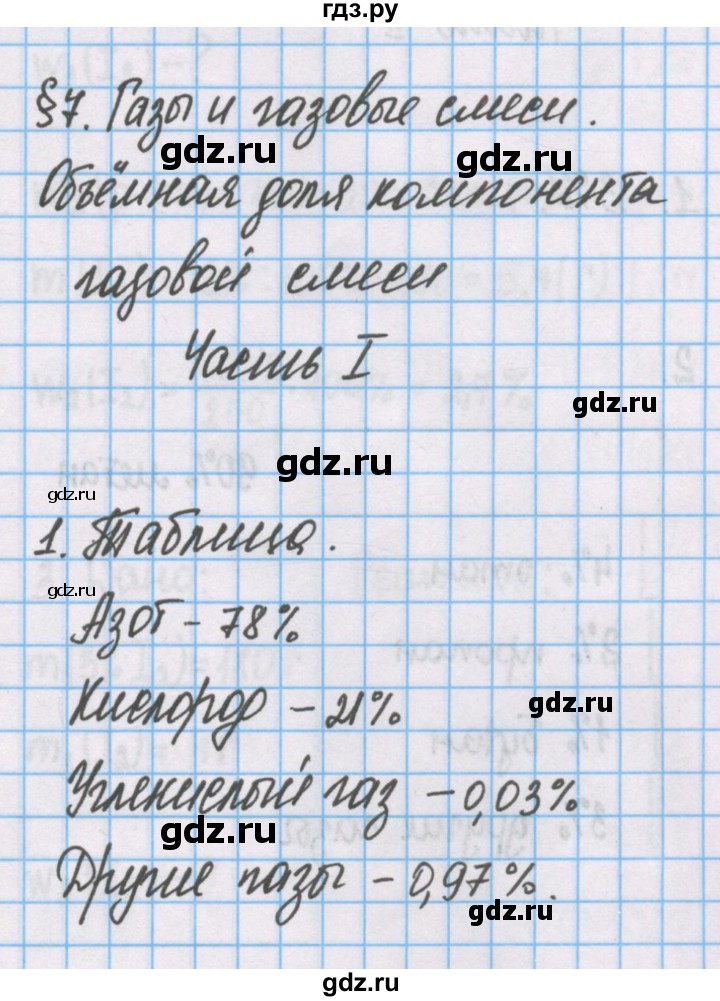 гдз.ру
§7. Газы и газовые смеси.
gdz.ru
gdz.ru
Объёмная доля компонента
газовой смеси
gdz.ru
Часть I
gdz.ru
gdz.ru
gdz.ru
1. Таблица.
gdz.ru
Азот - 78%
Кислород - 21%
gdz.ru
Углекислый газ - 0,03%
gdz.ru
gdz.ru
Другие газы - 0,97%.
gdz.ru
gdz.ru